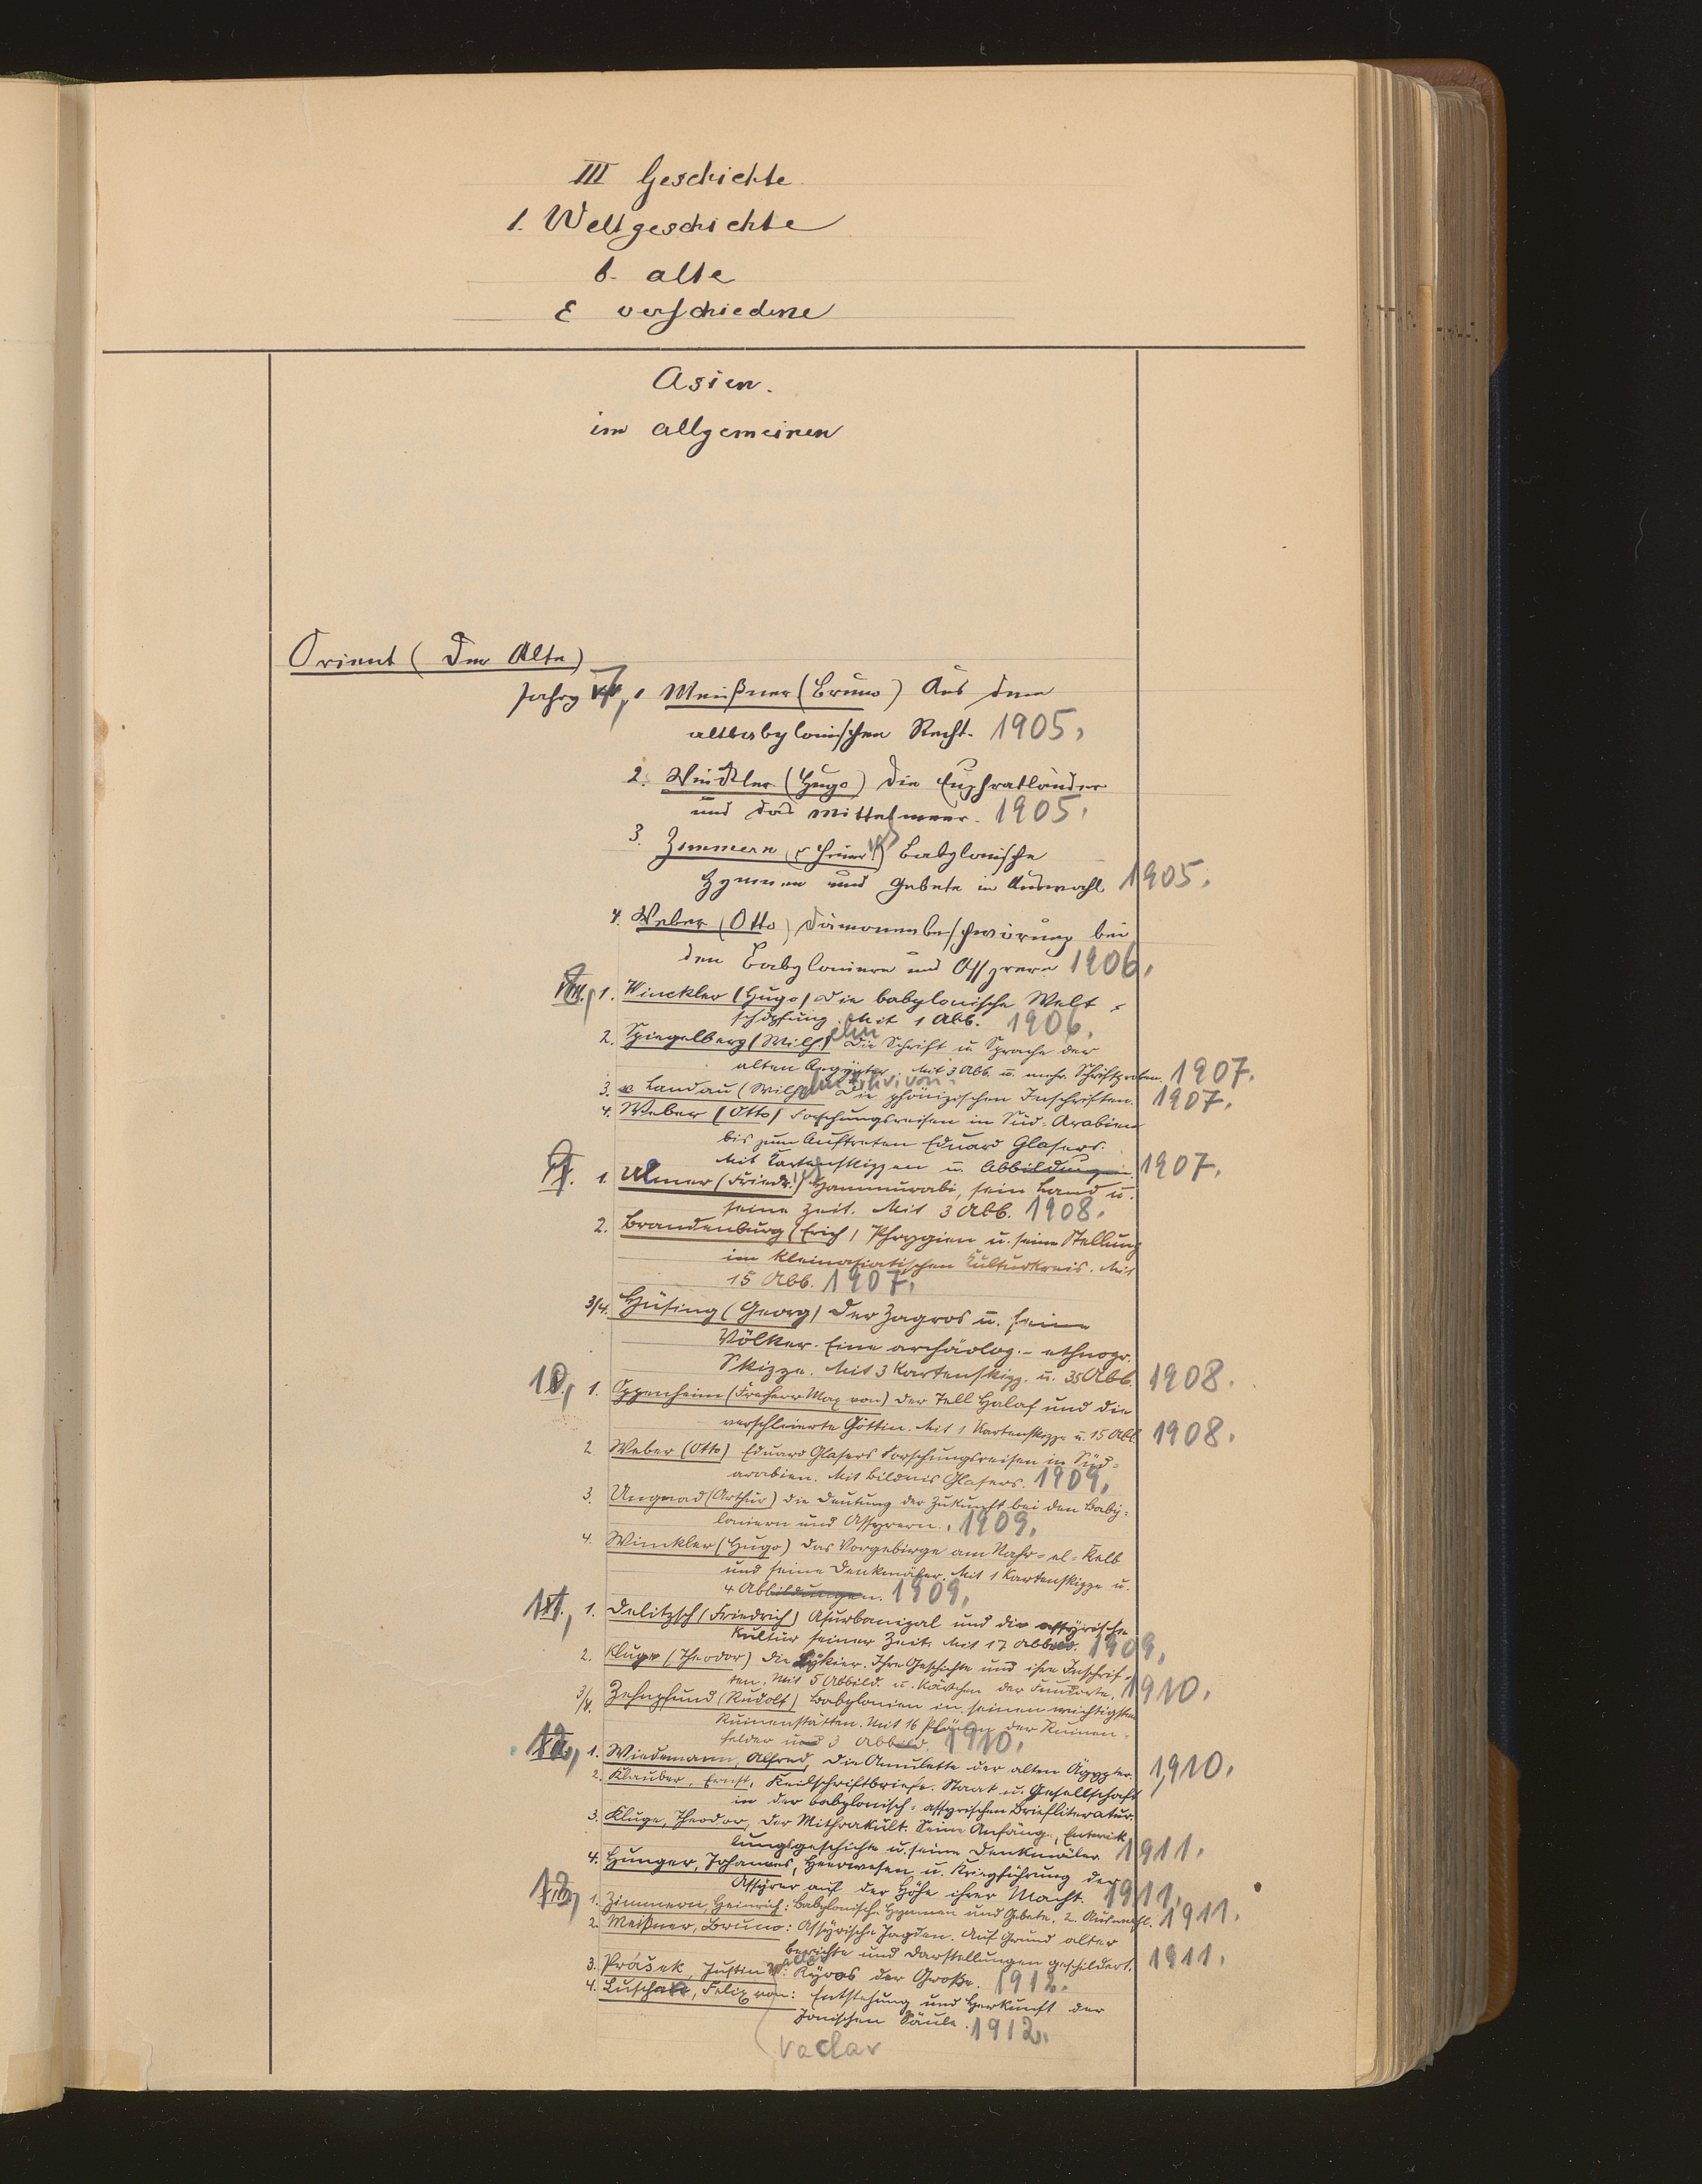 III Geschichte
1. Weltgeschichte
b. alte
ε verschiedene
Asien.
im allgemeinen
Orient (Der Alte)
Jahrg 7, 1 Meißner (Bruno) Aus dem
altbabylonischen Recht. 1905,
2. Winckler (Hugo) Die Euphratländer
und das Mittelmeer. 1905,
3. Zimmern (Heinr.) Babylonische
Hymnen und Gebete in Auswahl 1905.
4. Weber (Otto) Dämonenbeschwörung bei
den Babyloniern und Assyrern 1906,
8, 1. Winckler (Hugo) Die babylonische Welt-
schöpfung. Mit 1 Abb. 1906.
2. Spiegelberg (Wilhelm) Die Schrift u Sprache der
alten Aegypter. Mit 3 Abb. u. mehr. Schriftproben. 1907.
3. v Landau (Wilhelm Frhr. von) Die phönizischen Inschriften. 1907.
4. Weber (Otto) Forschungsreisen in Süd-Arabien
bis zum Auftreten Eduard Glasers.
Mit Kartenskizzen u. Abbildungen. 1907.
9. 1. Ulmer (Friedr.) Hammurabi, sein Land u.
seine Zeit. Mit 3 Abb. 1908.
2. Brandenburg (Erich) Phrygien u. seine Stellung
im kleinasiatischen Kulturkreis. Mit
15 Abb. 1907.
3/4. Hüsing (Georg) Der Zagros u. seine
Völker. Eine archäolog.-ethnogr.
Skizze. Mit 3 Kartenskizz. u. 35 Abb. 1908.
10, 1. Oppenheim (Freiherr Max von) Der Tell Halaf und die
verschleierte Göttin. Mit 1 Kartenskizze u. 15 Abb. 1908.
2. Weber (Otto) Eduard Glasers Forschungsreisen in Süd-
arabien. Mit Bildnis Glasers. 1909,
3. Ungnad (Arthur) Die Deutung der Zukunft bei den Baby-
loniern und Assyrern. 1909,
4. Winckler (Hugo) Das Vorgebirge am Nahr-el-Kelb
und seine Denkmäler. Mit 1 Kartenskizze u.
4 Abbildungen. 1909,
11, 1. Delitzsch (Friedrich) Asurbanipal und die assyrische
Kultur seiner Zeit. Mit 17 Abbild. 1909,
2. Kluge (Theodor) Die Lykier. Ihre Geschichte und ihre Inschrif-
ten. Mit 5 Abbild. u. Kärtchen der Fundorte. 1910.
3/4. Zehnpfund (Rudolf) Babylonien in seinen wichtigsten
Ruinenstätten. Mit 16 Plänen der Ruinen-
felder und 3 Abbild. 1910.
12, 1. Wiedemann, Alfred, Die Amulette der alten Ägypter. 1910.
2. Klauber, Ernst, Keilschriftbriefe. Staat u. Gesellschaft
in der babylonisch-assyrischen Briefliteratur.
3. Kluge, Theodor, Der Mithrakult. Seine Anfänge, Entwick-
lungsgeschichte u. seine Denkmäler 1911.
4. Hunger, Johannes, Heerwesen u. Kriegführung der
Assyrer auf der Höhe ihrer Macht. 1911,
13, 1. Zimmern, Heinrich: Babylonische Hymnen und Gebete. 2. Auswahl. 1911.
2. Meißner, Bruno: Assyrische Jagden. Auf Grund alter
Berichte und Darstellungen geschildert. 1911.
3. Prášek, Justin V: Kyros der Große. 1912.
4. Luschan, Felix von: Entstehung und Herkunft der
Jonischen Säule. 1912.
Vaclav